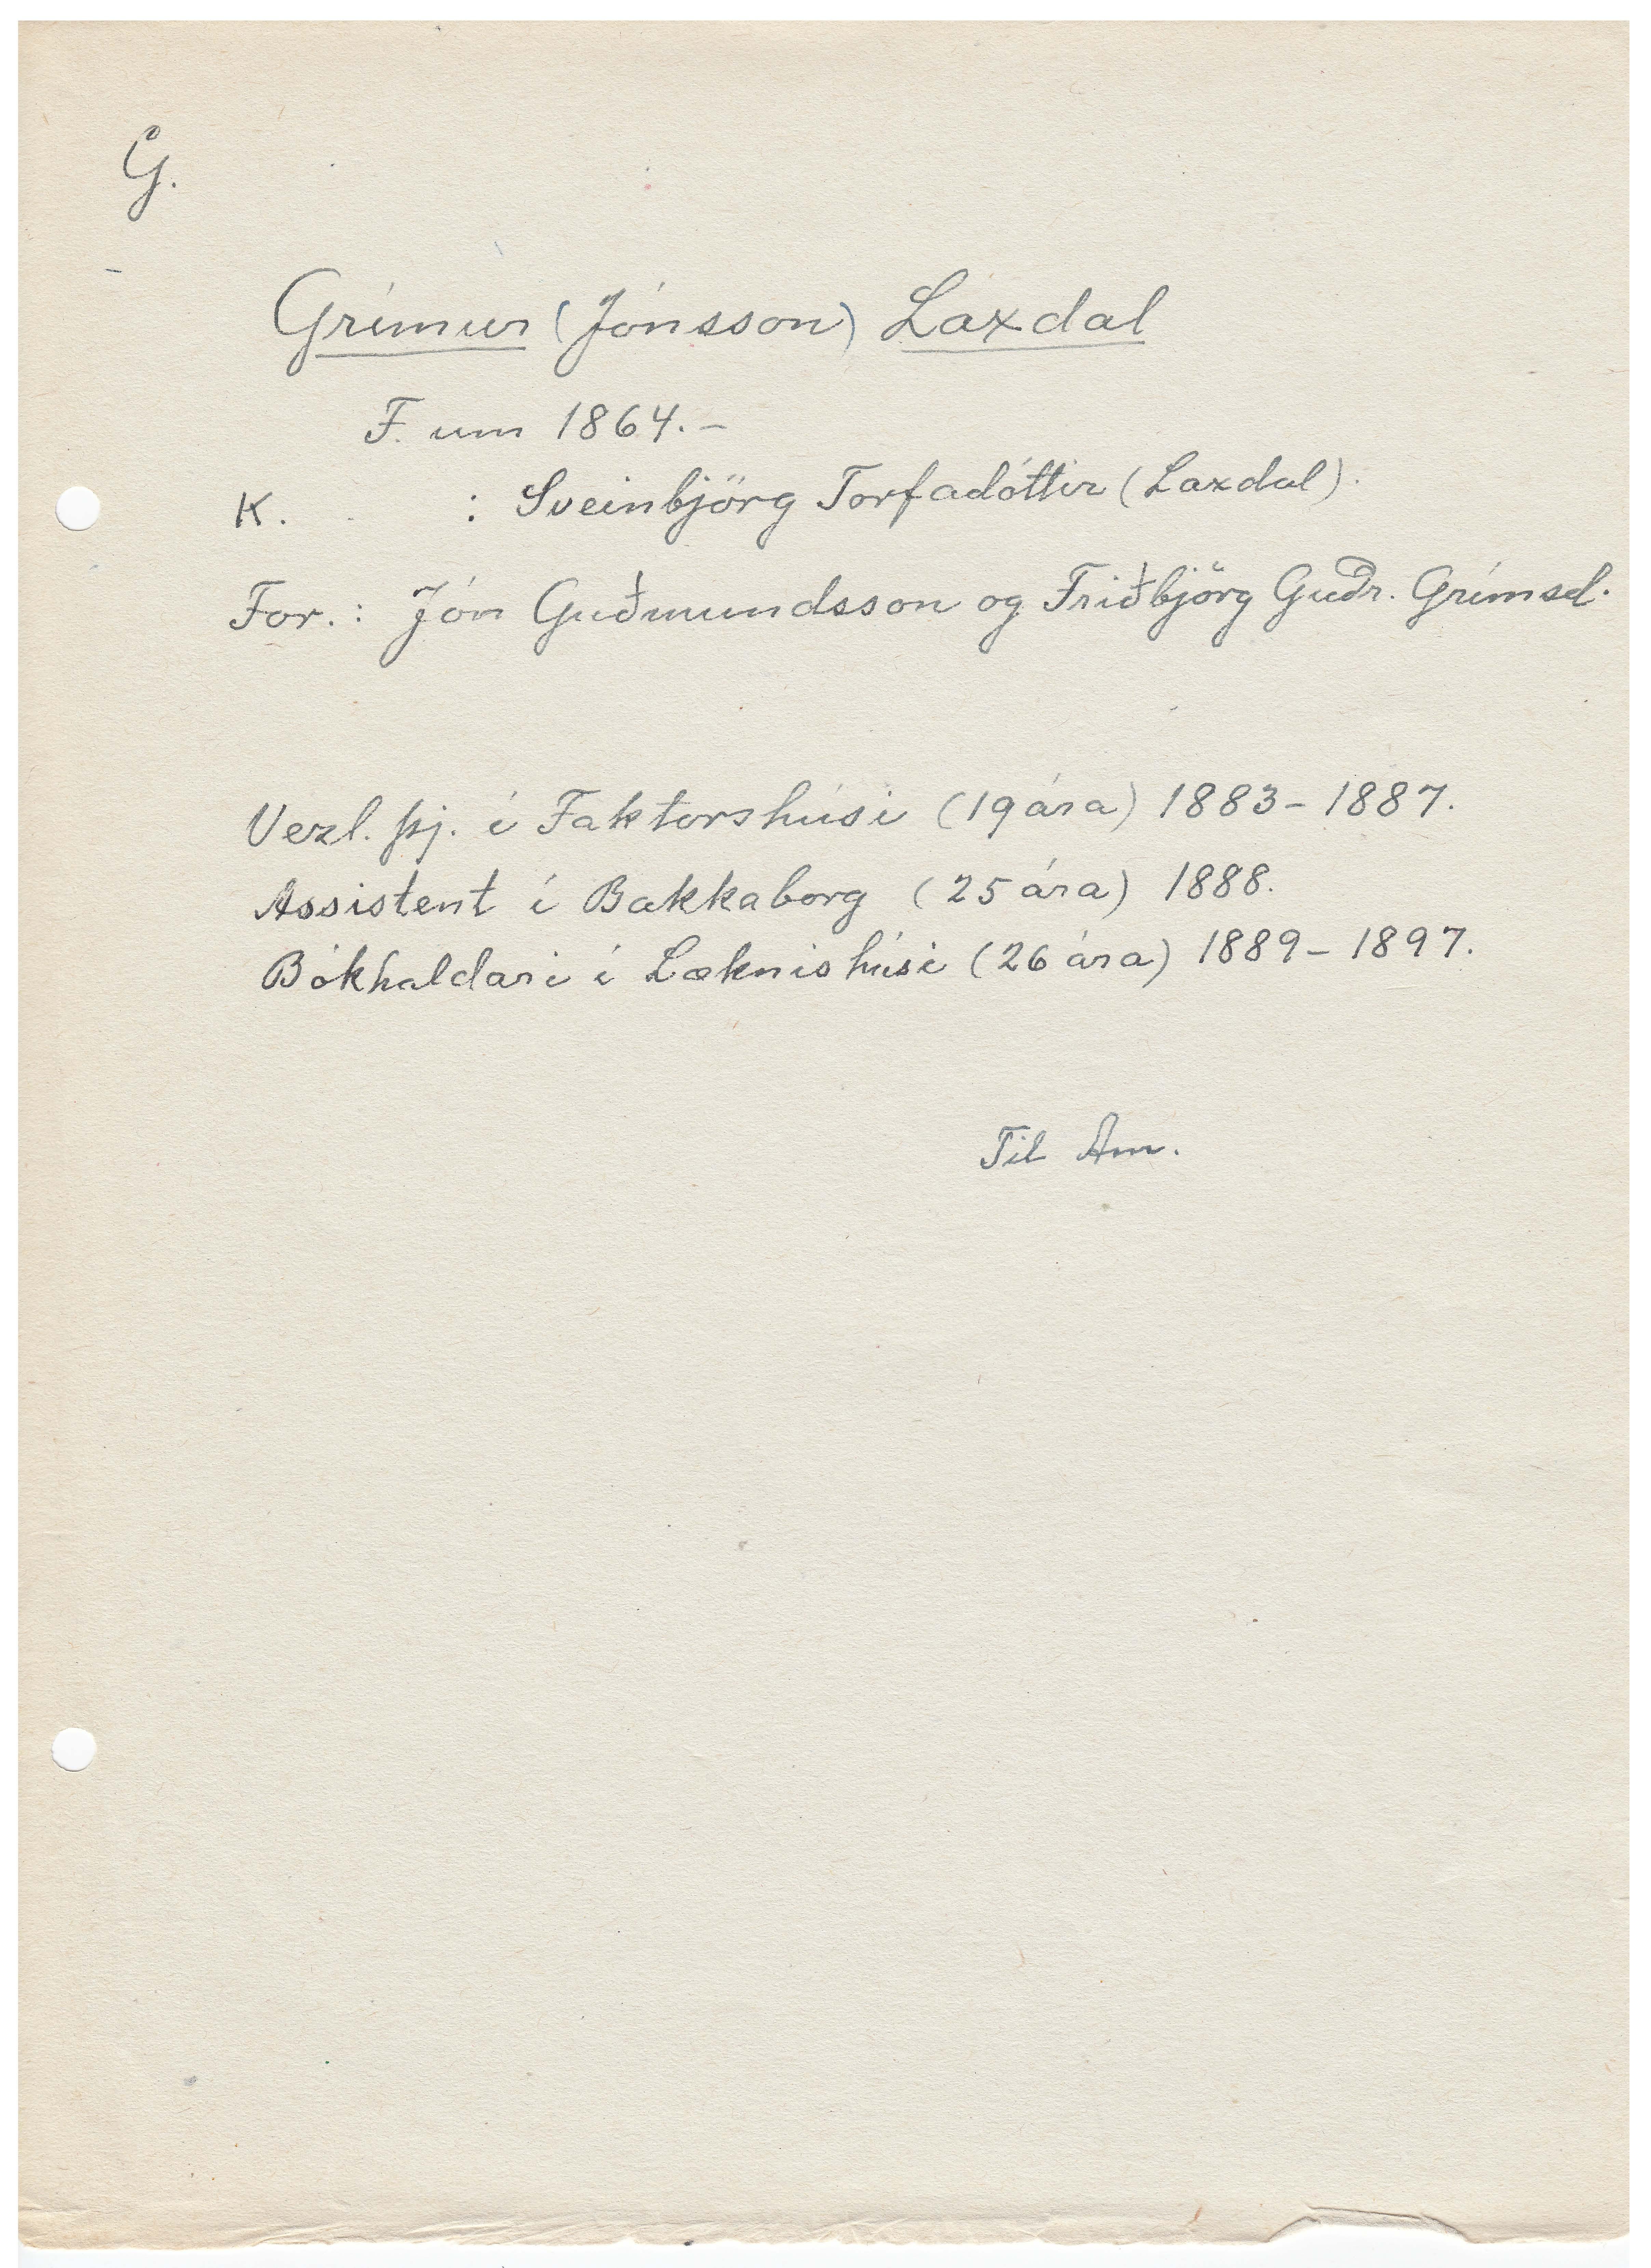 G.
Grímur (Jónsson) Laxdal
F. um 1864.-
K. : Sveinbjörg Torfadóttir (Laxdal).
For.: Jón Guðmundsson og Friðbjörg Guðr. Grímsd.
Verzl. þj. í Faktorshúsi (19 ára) 1883-1887.
Assistent í Bakkaborg (25 ára) 1888.
Bókhaldari í Læknishúsi (26 ára) 1889-1897.
Til Am.